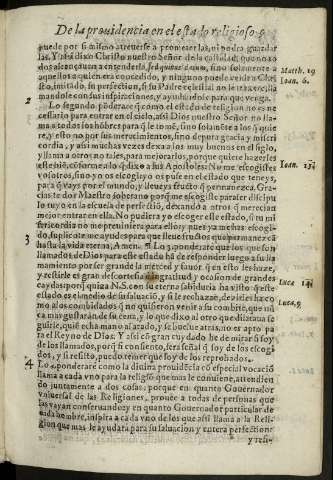 De la providencia en el estado religioso.
puede por si mismo atreuerse a prometerlas, ni podrà guardar
las. Y assi dixo Christo nuestro Señor de la castidad, que no to
dos alcançauan a entenderla, sed quibus datum, sino solamente a
aquellos a quien era concedido, y ninguno puede venir a Chri
sto, imitado su perfeccion, si su Padre celestial no le trae a el, lla
mandole con sus inspiraciones, y ayudandole para que venga.
Matth. 19
Ioan. 6.
2
Lo segundo põderare q̃ como el estado de religion no es ne
cessario para entrar en el cielo, assi Dios nuestro Señor no lla-
ma a todos los hõbres para q̃ le tomẽ, sino solamẽte a los q̃ quie
re, y esto no por sus merecimientos, sino de pura gracia y miseri
cordia, y assi muchas vezes dexa a los muy buenos en el siglo,
y llama a otros no tales, para mejorarlos, porque quiere hazerles
este fauor, cõforme a lo q̃ dixo a sus Apostoles: No me escogistes
vosotros, sino yo os escogi, y os puse en el estado que teneys,
para q̃ vays por el mundo, y lleueys fructo q̃ permanezca. Gra-
cias te doy Maestro soberano porq̃ me escogiste para ser discipu
lo tuyo en la escuela de perfeciõ, dexando a otros q̃ merecian
mejor entrar en ella. No pudiera yo escoger este estado, si tu mi
sericordia no me preuiniera para ello, y pues ya me has escogi-
do, suplicote me ayudes para que lleue frutos que permanezcã
hasta la vida eterna, Amen.
Ioan. 15.
3
Lo 3. ponderare que los que son
llamados de Dios para este estado hã de responder luego a su lla
mamiento por ser grande la merced y fauor q̃ en esto les haze,
y resistirle es gran descortesia, ingratitud, y ocasion de grandes
caydas, porq̃ quiça N. S. con su eterna sabiduria ha visto q̃ este
estado es el medio de su saluacio, y si le rechazã, dexirles ha co-
mo a los combidados q̃ no quisieron venir a su combite, que nũ
ca mas gustaràn de su cena, y lo que dixo al otro que dilataua se
guirle, que quiẽ echa mano al arado, y se buelue atras, no es apto pa
ra el Reyno de Dios. Y assi cõ gran cuydado he de mirar si soy
de los llamados, porq̃ si consiento, sera señal q̃ soy de los escogi
dos, y si resisto, puedo temer que soy de los reprobados.
Luca 14
Luca. 9
4
Lo 4. ponderare como la diuina prouidẽcia cõ especial vocaciõ
llama a cada vno para la religiõ que mas le conuiene, atendien
do juntamente a dos cosas; porque en quanto Gouernador
vniuersal de las Religiones, prouee a todas de personas que
las vayan conseruando: y en quanto Gouernador particular de
cada hombre, inspira a cada vno de los que assi llama a la Reli-
gion que mas le ayudarà para su saluacion y entera perfeccion:
y reli-